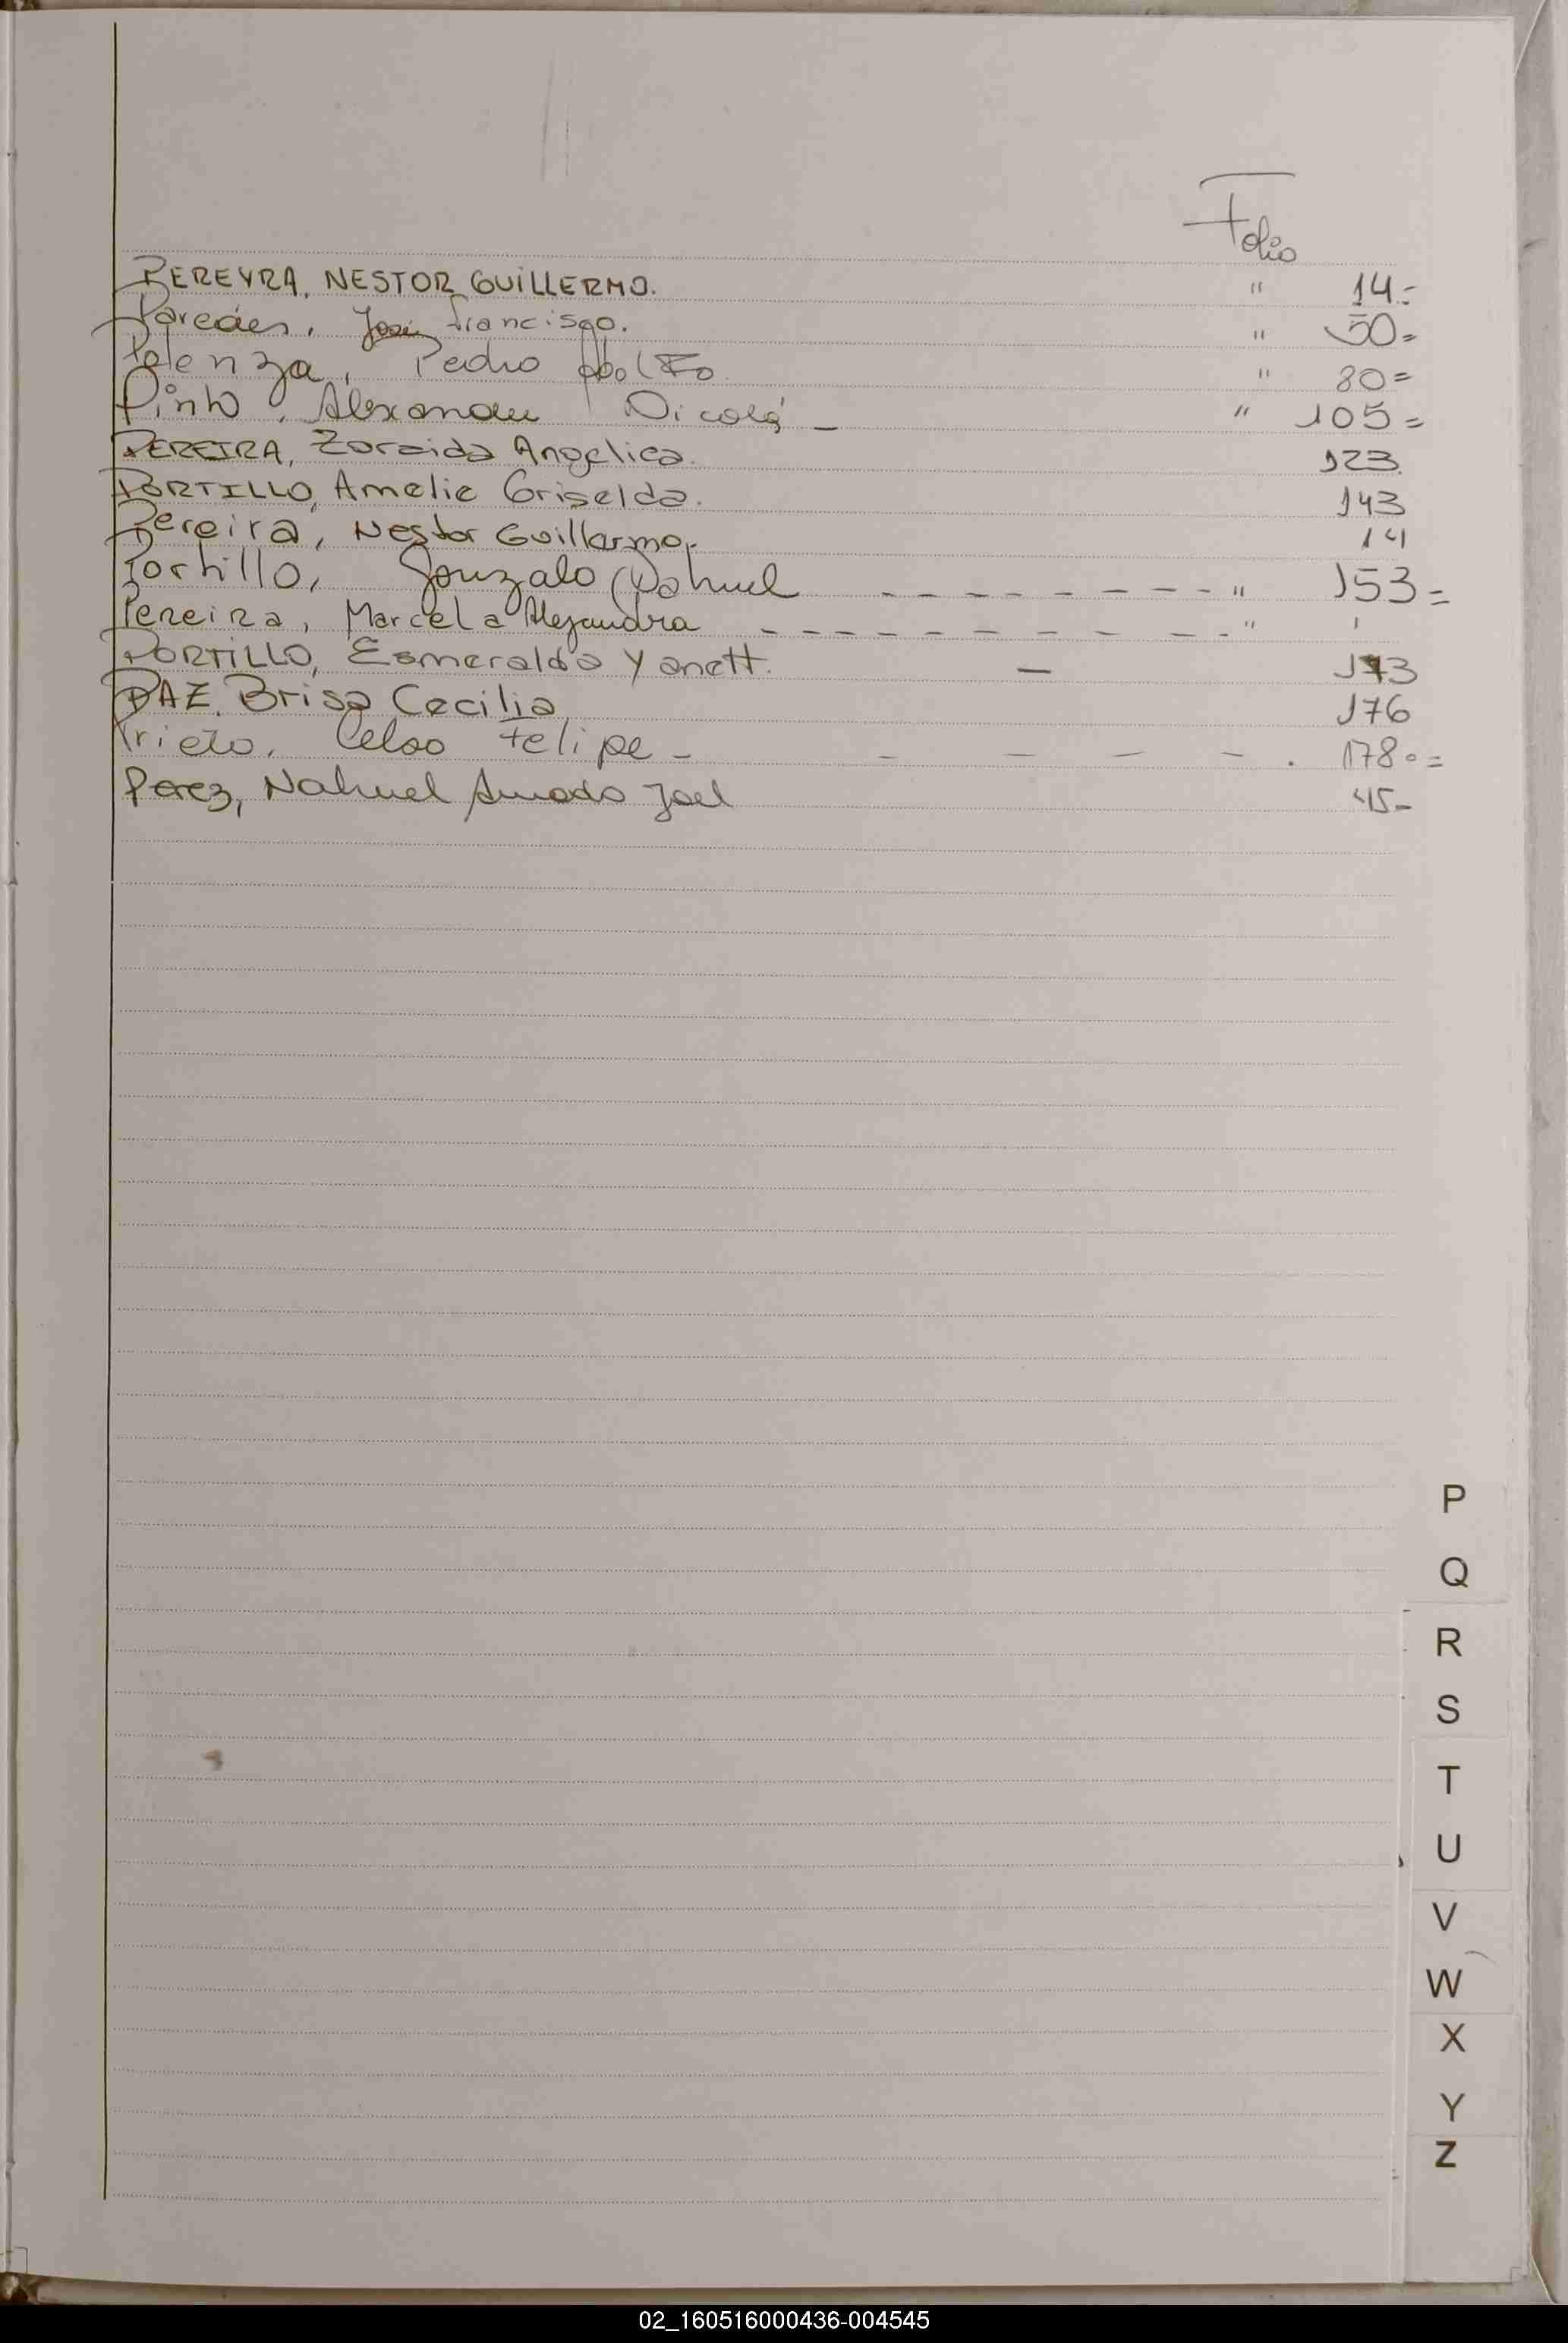 Folio
PEREYRA, NESTOR GUILLERMO. " 14.-
Paredes, José Francisco. " 50=
Polenza, Pedro Adolfo " 80=
Pinto, Alexander Nicolá - " 105=
PEREIRA, Zoraida Angelica. 123.
PORTILLO, Amelie Griselda. 143
Pereira, Nestor Guillermo. 14
Portillo, Gonzalo Nahuel - - - - - - - - " 153=
Pereira, Marcela Alejandra - - - - - - - - - " '
PORTILLO, Esmeralda Yanett. - 173
PAZ, Brisa Cecilia 176
Prieto, Celso Felipe - - - - - . 178.=
Perez, Nahuel Amado Joel 45-
P
Q
R
S
T
U
V
W
X
Y
Z
02_160516000436-004545